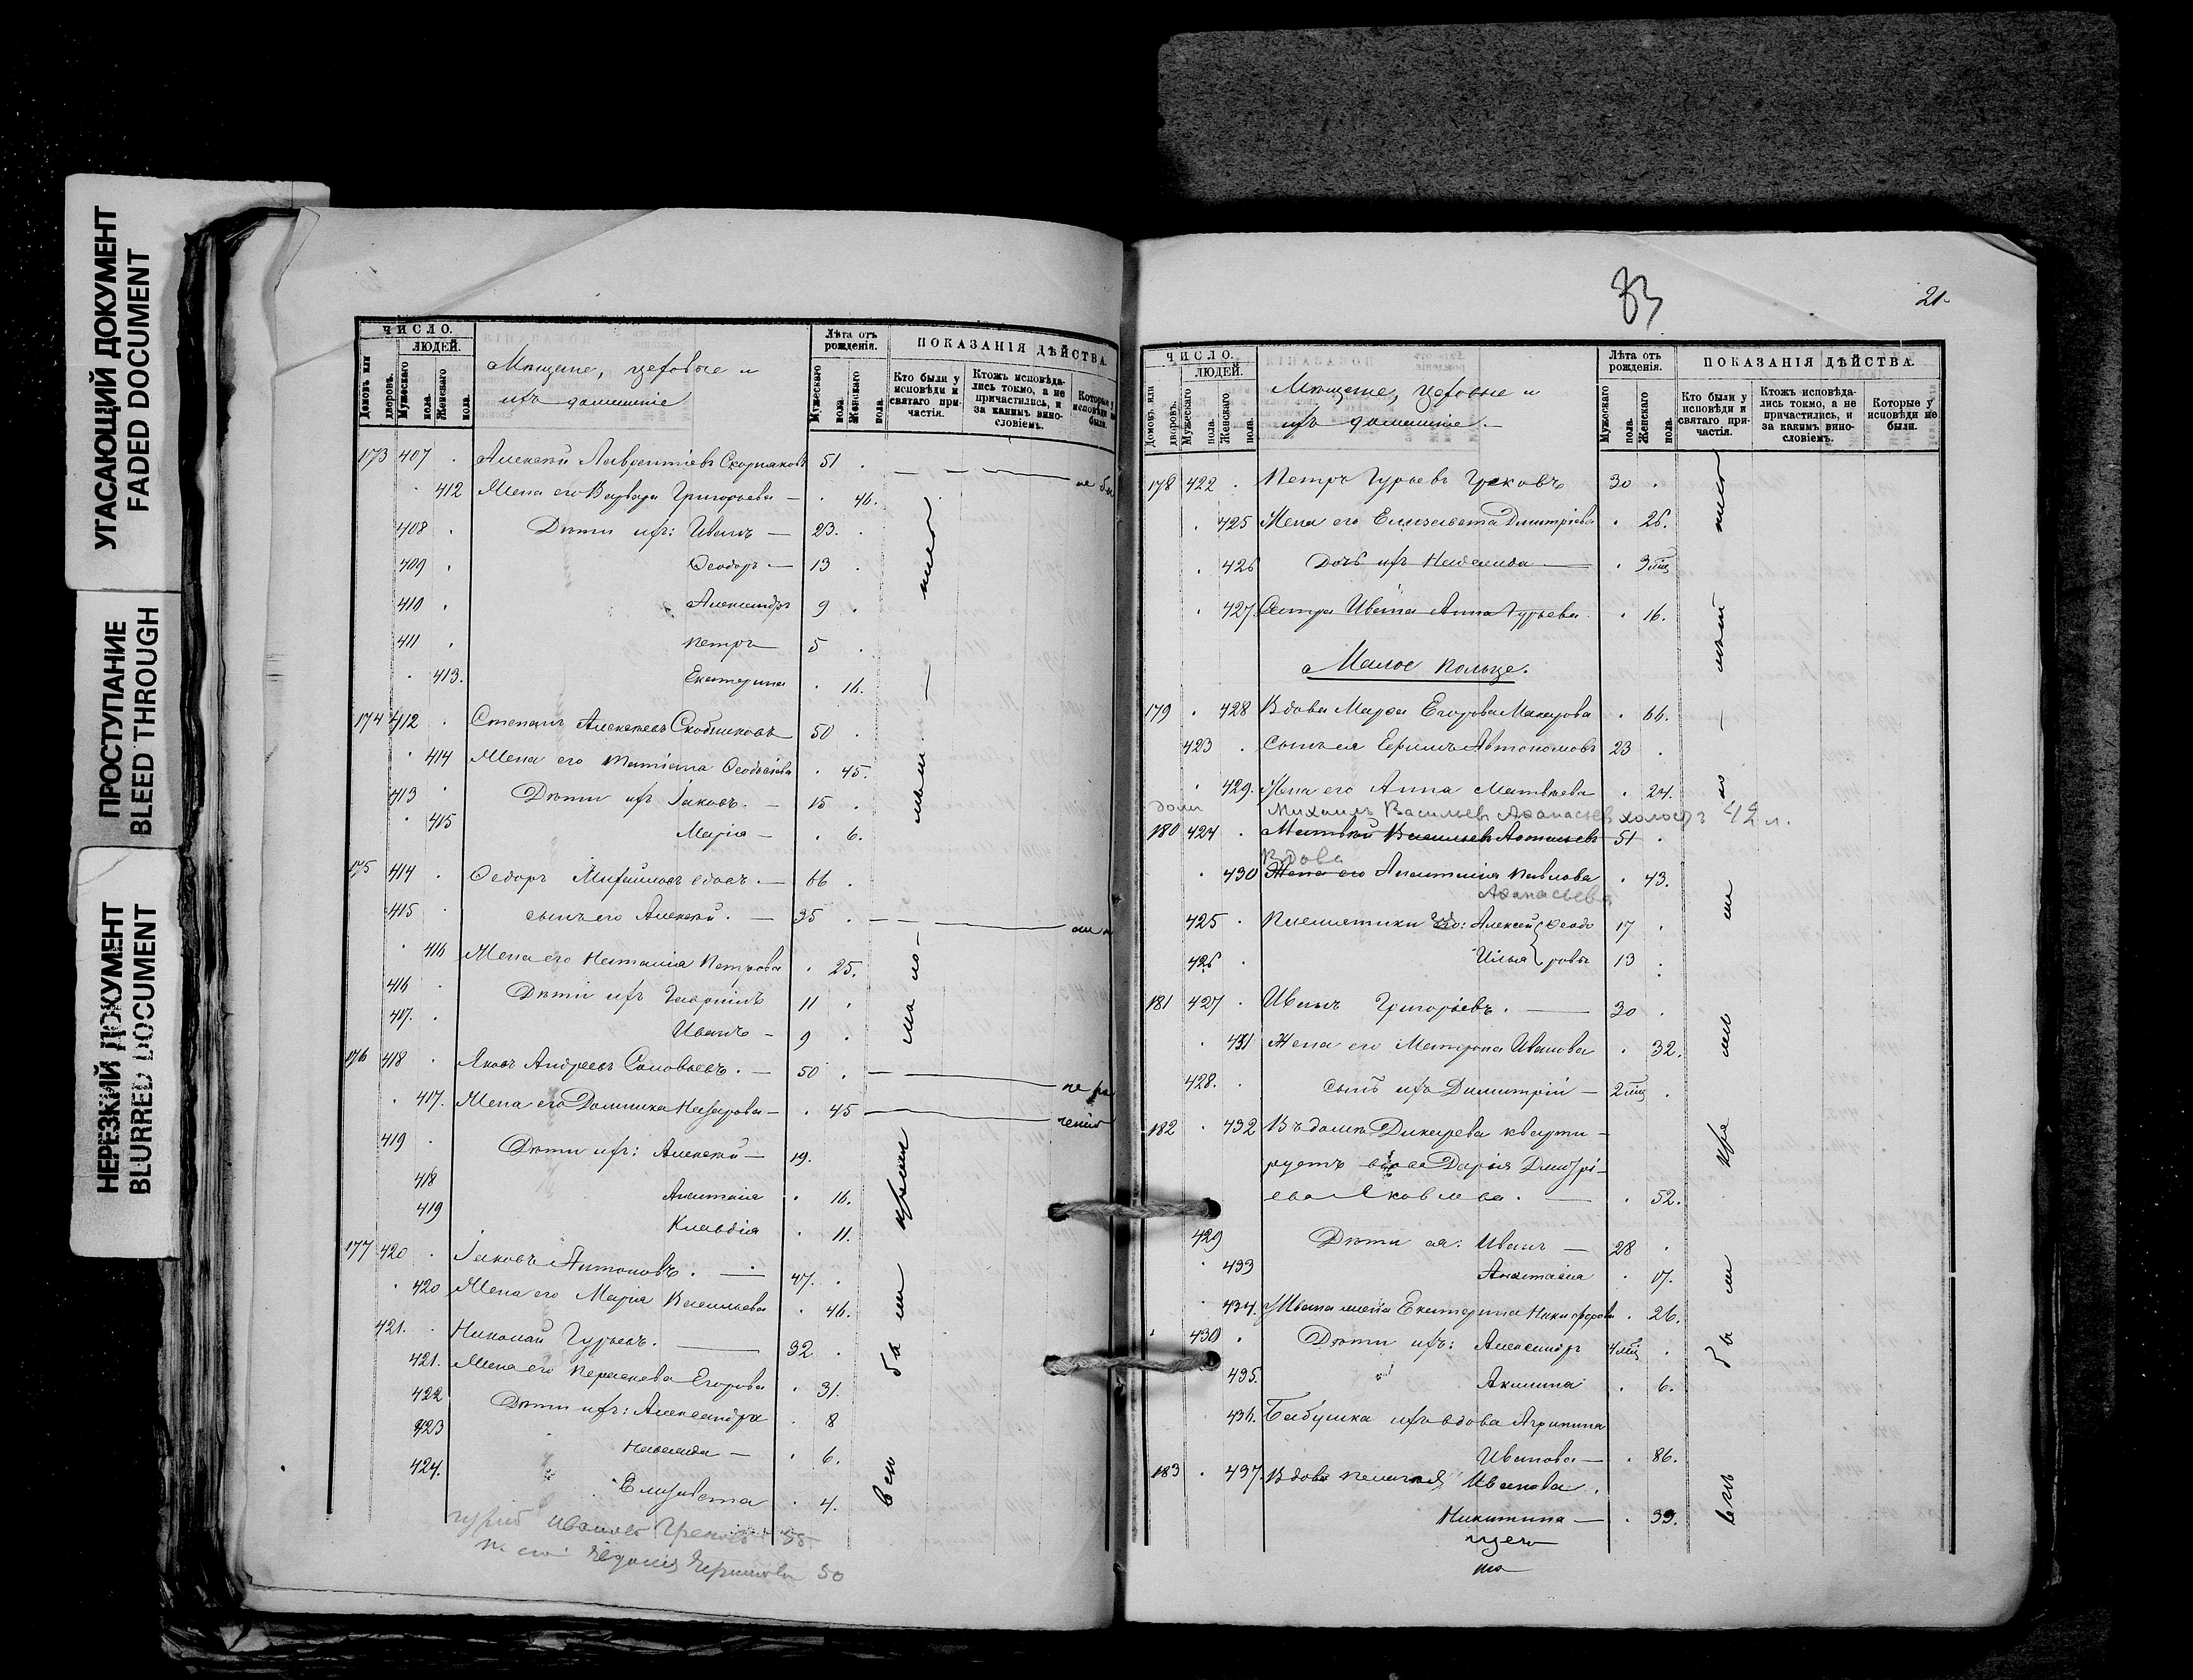 УГАСАЮЩИЙ ДОКУМЕНТ
FADED DOCUMENT
ПРОСТУПАНИЕ
BLEED THROUGH
НЕРЕЗКИЙ ДОКУМЕНТ
BLURRED DOCUMENT
ЧИСЛО.
ЛЮДЕЙ.
Домовъ или дворовъ.
Мужескаго пола.
Женскаго пола.
Мѣщане, цеховые и
ихъ домашніе
Лѣта отъ рожденія.
Мужескаго пола.
Женскаго пола.
ПОКАЗАНІЯ ДѢЙСТВА.
Кто были у исповѣди и святаго причастія.
Ктожъ исповѣдались токмо, а не причастились, и за какимъ винословіемъ.
Которые у исповѣди не были.
173 407 Алексѣй Лаврентіевъ Скорняковъ 51
412 Жена его Варвара Григорьева — 46.
408 Дѣти ихъ: Иванъ — 23.
409 Ѳеодоръ — 13
410 Александръ 9
411 Петръ 5
413. Екатерина 16.
174 412 Степанъ Алексѣевъ 50
414 Жена его 45.
413 Дѣти ихъ Іаковъ. — 15
415 Марія — 6.
175 414 Ѳедоръ Михайловъ вдовъ. — 66
415 сынъ его Алексѣй. — 35
416 Жена его Наталія Петрова 25.
416 Дѣти ихъ Гавріилъ 11
417. Иванъ — 9
176 418 Яковъ Андреевъ Соловьевъ. — 50
417. Жена его Домника Назарова — 45
419 Дѣти ихъ: Алексѣй — 19.
418 Анастасія 16.
419 Клавдія 11.
177 420 Іаковъ Антоновъ. — 47.
420 Жена его Марія Васильева 46.
421. Николай Гурьевъ. — 32
421. Жена его Параскева Егорова 31.
422 Дѣти ихъ: Александра 8
423 — 6.
424. Елизавета 4.
Гурій Ивановъ Грековъ 58
ж его 50
83
21.
ЧИСЛО.
ЛЮДЕЙ.
Домовъ или дворовъ.
Мужескаго пола.
Женскаго пола.
Мѣщане, цеховые и
ихъ домашніе. —
Лѣта отъ рожденія.
Мужескаго пола.
Женскаго пола.
ПОКАЗАНІЯ ДѢЙСТВА.
Кто были у исповѣди и святаго причастія.
Ктожъ исповѣдались токмо, а не причастились, и за какимъ винословіемъ.
Которые у исповѣди не были.
178 422 Петръ Гурьевъ Грековъ 30
425 Жена его Елизавета Дмитріева 26.
426 Дочь ихъ — 3
427 Сестра Ивана Анна Гурьева 16.
Малое Кольцо.
179 428 Вдова Марѳа Егорова Макарова 66.
423 Сынъ ея Ефимъ Автономовъ 23
429. Жена его Анна Матвѣева 24.
Михаилъ Васильевъ Аѳанасьевъ холостъ 42 л.
180 424 Матвѣй Васильевъ 51
Вдова
430 Жена его Анастасія Павлова 43.
Аѳанасьева
425 Племянники его: Алексѣй Ѳеодо 17
426 Илья ровы 13
181 427 Иванъ Григорьевъ. — 30
431 Жена его Матрона Иванова 32.
428. сынъ ихъ Димитрій — 2
182 432 Въ домѣ Дикарева кварти-
руетъ вдова Дарія Дмитрі-
ева Яковлева. — 52.
429 Дѣти ея: Иванъ — 28
433 Анастасія 17.
434. Ивана жена Екатерина Никифорова 26.
430 Дѣти ихъ: Александръ 4
435. Акилина 6.
436. Бабушка ихъ вдова Агрипина
Иванова — 86.
183 437. Вдова Пелагія Иванова
Никитина — 39.